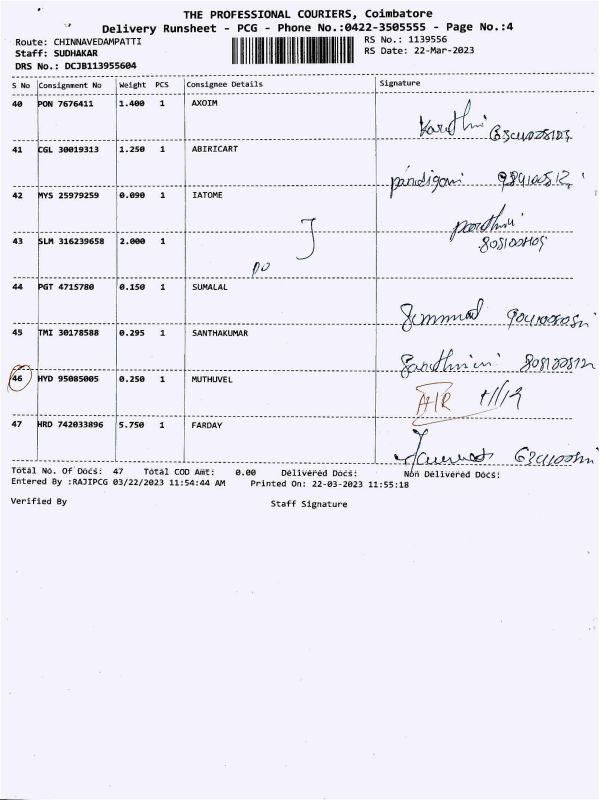 THE PROFESSIONAL COURIERS, Coimbatore
Delivery Runsheet - PCG - Phone No.:0422-3505555 - Page No.:4
Route: CHINNAVEDAMPATTI
RS No.: 1139556
Staff: SUDHAKAR
RS Date: 22-Mar-2023
DRS No.: DCJB113955604
S No Consignment No Weight PCS Consignee Details Signature
40 PON 7676411 1.400 1 AXOIM
41 CGL 30019313 1.250 1 ABIRICART
42 MYS 25979259 0.090 1 IATOME
43 SLM 316239658 2.000 1
44 PGT 4715780 0.150 1 SUMALAL
45 TMI 30178588 0.295 1 SANTHAKUMAR
46 HYD 95085005 0.250 1 MUTHUVEL
47 HRD 742033896 5.750 1 FARDAY
Total No. Of Docs: 47 Total COD Amt: 0.00 Delivered Docs: Non Delivered Docs:
Entered By :RAJIPCG 03/22/2023 11:54:44 AM Printed On: 22-03-2023 11:55:18
Verified By Staff Signature